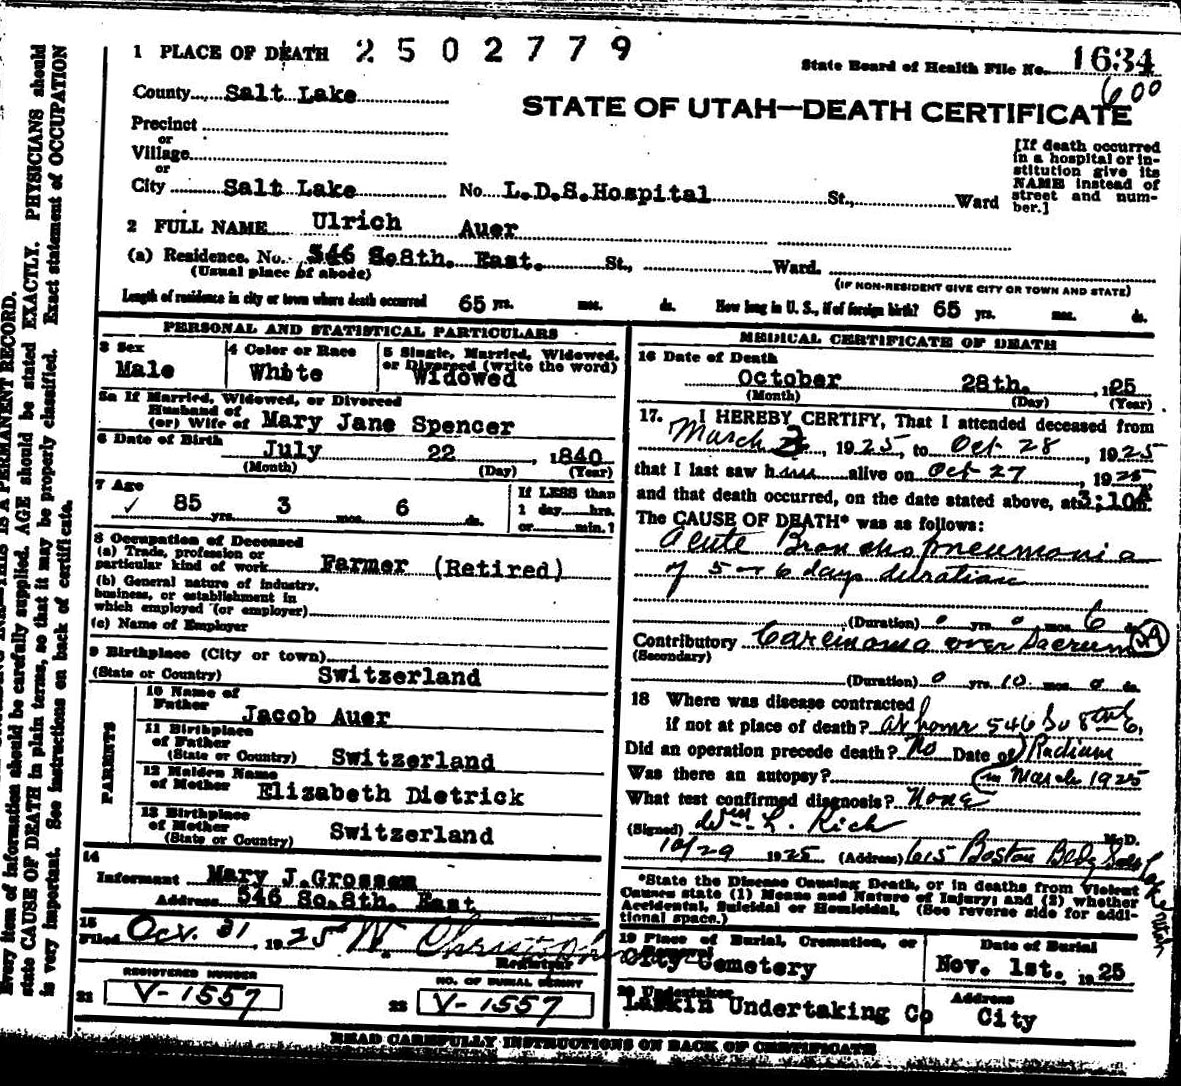 1 PLACE OF DEATH 2502779
State Board of Health File No. 1634
600
County Salt Lake
STATE OF UTAH—DEATH CERTIFICATE
Precinct
or
Village
or
City Salt Lake No. L.D.S.Hospital St., Ward
[If death occurred
in a hospital or in-
stitution give its
NAME instead of
street and num-
ber.]
2 FULL NAME Ulrich Auer
(a) Residence. No. 546 So.8th. East. St., Ward.
(Usual place of abode)
(IF NON-RESIDENT GIVE CITY OR TOWN AND STATE)
Length of residence in city or town where death occurred 65 yrs. mos. ds. How long in U. S., if of foreign birth? 65 yrs. mos. ds.
PERSONAL AND STATISTICAL PARTICULARS
3 Sex
Male
4 Color or Race
White
5 Single, Married, Widowed,
or Divorced (write the word)
Widowed
5a If Married, Widowed, or Divorced
Husband of
(or) Wife of Mary Jane Spencer
6 Date of Birth
July 22, 1840
(Month) (Day) (Year)
7 Age
85 yrs. 3 mos. 6 ds.
If LESS than
1 day hrs.
or min.?
8 Occupation of Deceased
(a) Trade, profession or
particular kind of work Farmer (Retired)
(b) General nature of industry,
business, or establishment in
which employed (or employer)
(c) Name of Employer
9 Birthplace (City or town)
(State or Country) Switzerland
PARENTS
10 Name of
Father Jacob Auer
11 Birthplace
of Father
(State or Country) Switzerland
12 Maiden Name
of Mother Elizabeth Dietrick
13 Birthplace
of Mother
(State or Country) Switzerland
14
Informant Mary J.Grossem
Address 546 So.8th. East
15
Filed Oct. 31, 1925 W. Registrar
REGISTERED NUMBER
21 V-1557
NO. OF BURIAL PERMIT
22 V-1557
MEDICAL CERTIFICATE OF DEATH
16 Date of Death
October 28th. , 1925
(Month) (Day) (Year)
17. I HEREBY CERTIFY, That I attended deceased from
March , 1925, to Oct 28, 1925
that I last saw him alive on Oct 27, 1925,
and that death occurred, on the date stated above, at 3:10A m.
The CAUSE OF DEATH* was as follows:
Acute Broncho pneumonia
of 5 or 6 days duration
(Duration) 0 yrs. 0 mos. 6 ds.
Contributory Carcinoma over Sacrum
(Secondary)
(Duration) 0 yrs. 10 mos. 0 ds.
18 Where was disease contracted
if not at place of death? at home 546 So 8th E.
Did an operation precede death? No Date of Radium
Was there an autopsy? in March 1925
What test confirmed diagnosis? None
(Signed) Wm. L. Rich M.D.
10/29 1925 (Address) 615 Boston Bldg Salt Lake
*State the Disease Causing Death, or in deaths from Violent
Causes state (1) Means and Nature of Injury; and (2) whether
Accidental, Suicidal or Homicidal. (See reverse side for addi-
tional space.)
19 Place of Burial, Cremation, or
Removal
City Cemetery
Date of Burial
Nov. 1st. , 1925
20 Undertaker
Larkin Undertaking Co
Address
City
READ CAREFULLY INSTRUCTIONS ON BACK OF CERTIFICATE
THIS IS A PERMANENT RECORD.
Every item of information should be carefully supplied. AGE should be stated EXACTLY. PHYSICIANS should
state CAUSE OF DEATH in plain terms, so that it may be properly classified. Exact statement of OCCUPATION
is very important. See instructions on back of certificate.